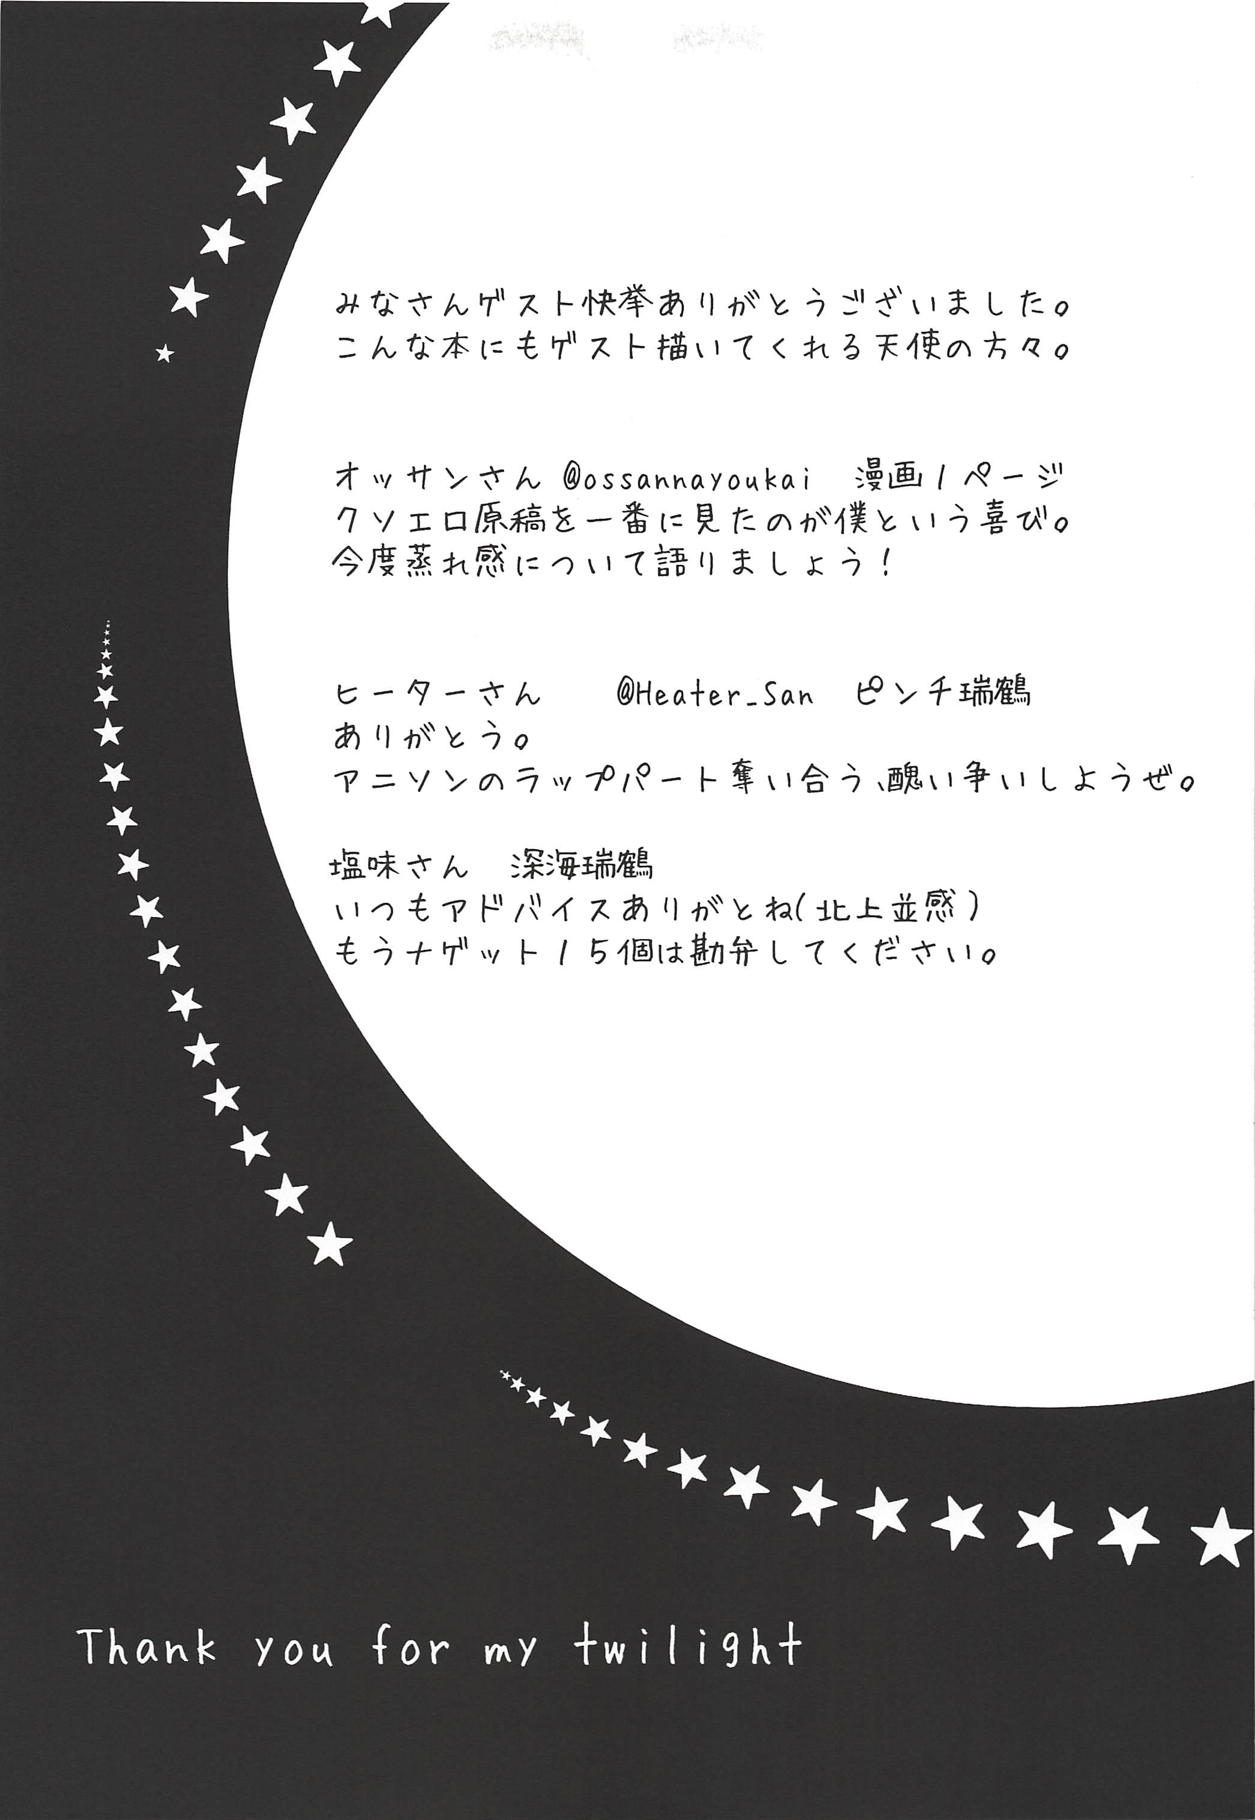 みなさんゲスト快挙ありがとうございました。
こんな本にもゲスト描いてくれる天使の方々。
オッサンさん @ossannayoukai 漫画1ページ
クソエロ原稿を一番に見たのが僕という喜び。
今度蒸れ感について語りましょう!
ヒーターさん @Heater_San ピンチ瑞鶴
ありがとう。
アニソンのラップパート奪い合う、醜い争いしようぜ。
塩味さん 深海瑞鶴
いつもアドバイスありがとね(北上並感)
もうナゲット15個は勘弁してください。
Thank you for my twilight